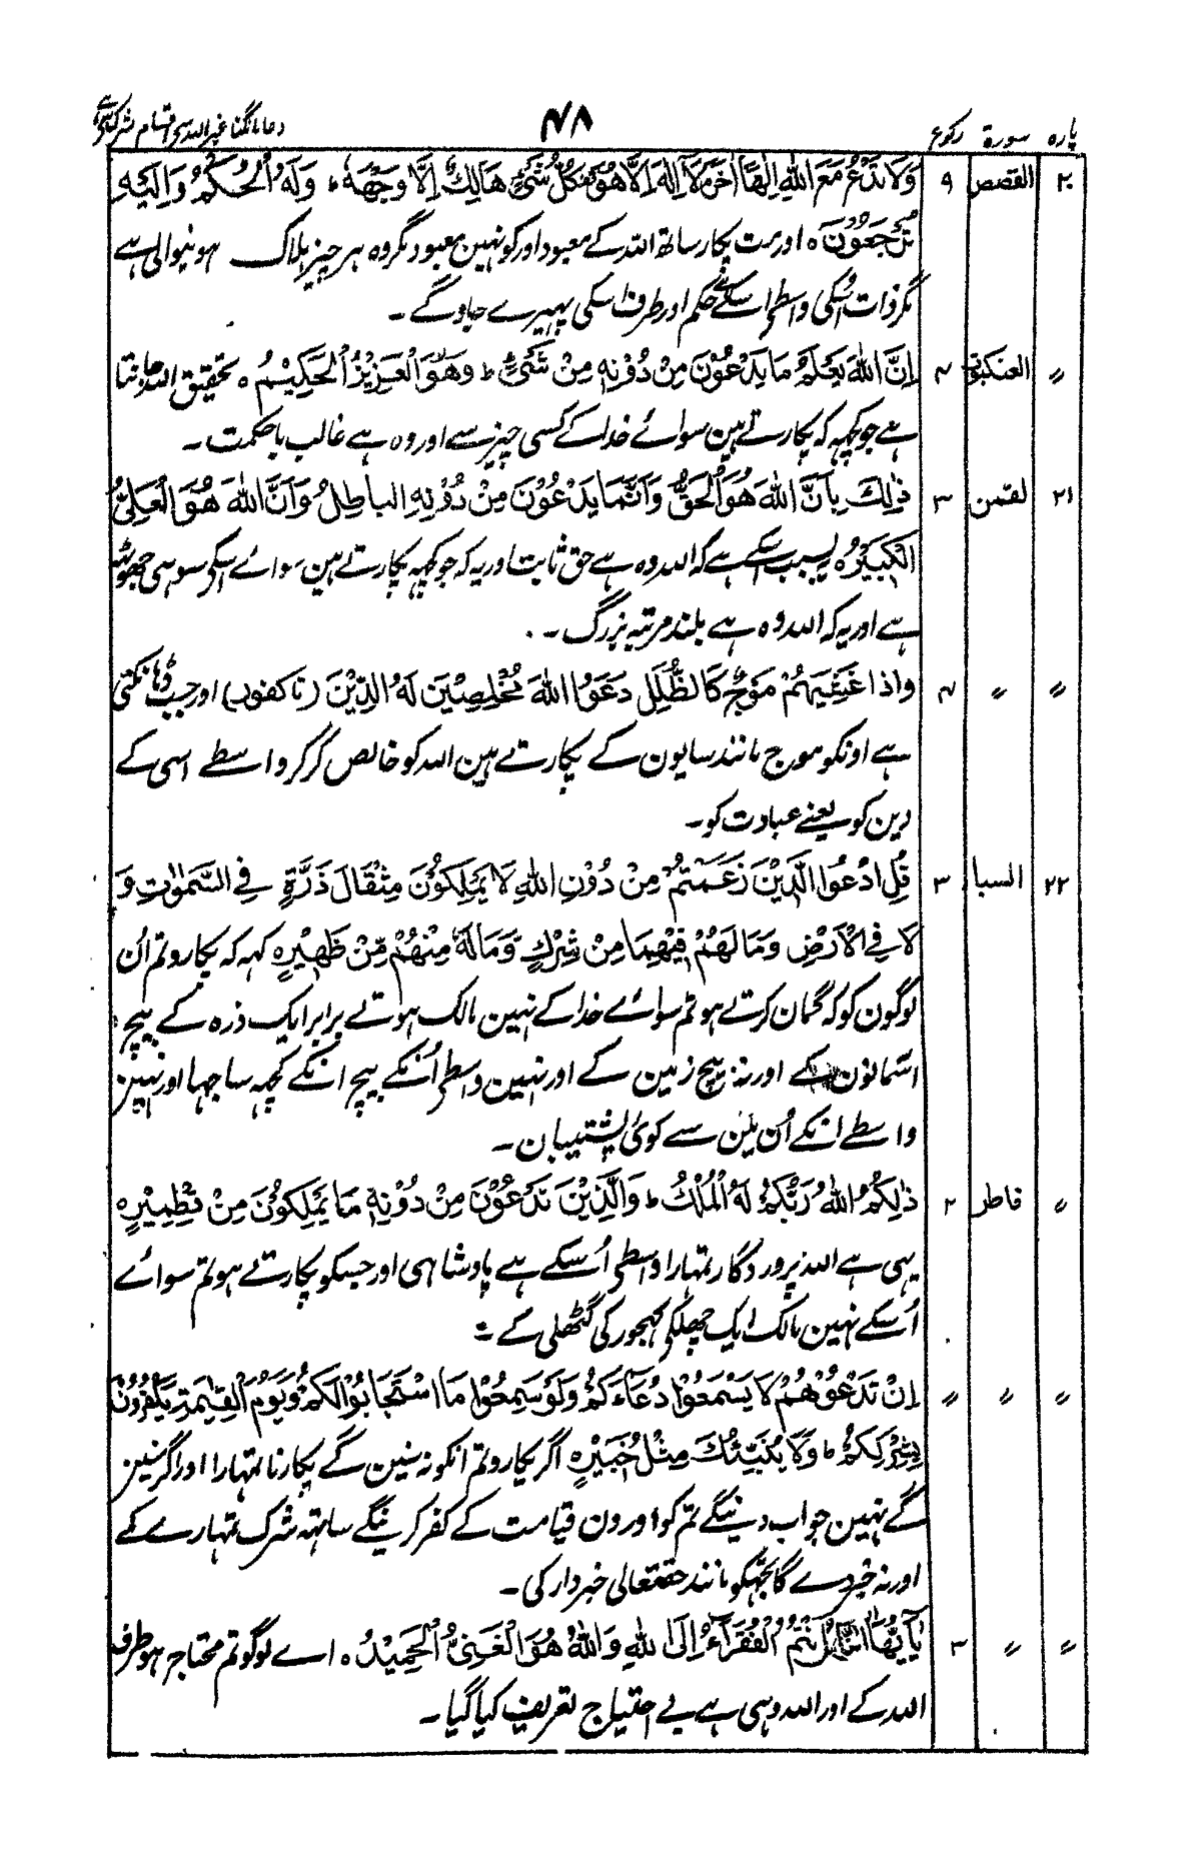 پارہ سورۃ رکوع ۴۸ دعا مانگنا غیر اللہ سے اقسام شرک
۲۰ القصص ۹ وَلَا تَدْعُ مَعَ اللّٰهِ اِلٰهًا اٰخَرَ لَآ اِلٰهَ اِلَّا هُوَ كُلُّ شَىْءٍ هَالِكٌ اِلَّا وَجْهَهٗ ط وَلَهُ الْحُكْمُ وَاِلَيْهِ
تُرْجَعُوْنَ ه اور مت پکار ساتھ اللہ کے معبود اور کو نہین معبود مگر وہ ہر چیز ہلاک ہونیوالی ہے
مگر ذات اُسکی واسطے اسکے ہے حکم اور طرف اسکی پہیرے جاوگے۔
〃 العنکبوت ۴ اِنَّ اللّٰهَ يَعْلَمُ مَا يَدْعُوْنَ مِنْ دُوْنِهٖ مِنْ شَىْءٍ ط وَهُوَ الْعَزِيْزُ الْحَكِيْمُ ه تحقیق اللہ جانتا
ہے جو کچہہ کہ پکارتے ہین سوائے خدا کے کسی چیز سے اور وہ ہے غالب با حکمت۔
۲۱ لقمٰن ۳ ذٰلِكَ بِاَنَّ اللّٰهَ هُوَ الْحَقُّ وَاَنَّمَا يَدْعُوْنَ مِنْ دُوْنِهِ الْبَاطِلُ وَاَنَّ اللّٰهَ هُوَ الْعَلِىُّ
الْكَبِيْرُ ه یہ سبب اسکے ہے کہ اللہ وہ ہے حق ثابت اور یہ کہ جو کچہہ پکارتے ہین سوائے اسکے سو ہی جھوٹھ
ہے اور یہ کہ اللہ وہ ہے بلند مرتبہ بزرگ۔
〃 〃 ۴ وَاِذَا غَشِيَهُمْ مَوْجٌ كَالظُّلَلِ دَعَوُا اللّٰهَ مُخْلِصِيْنَ لَهُ الدِّيْنَ (تا کفور) اور جب ڈہانکتی
ہے اونکو موج مانند سایون کے پکارتے ہین اللہ کو خالص کرکر واسطے اسی کے
دین کو یعنے عبادت کو۔
۲۲ السبا ۳ قُلِ ادْعُوا الَّذِيْنَ زَعَمْتُمْ مِنْ دُوْنِ اللّٰهِ لَا يَمْلِكُوْنَ مِثْقَالَ ذَرَّةٍ فِى السَّمٰوٰتِ وَ
لَا فِى الْاَرْضِ وَمَا لَهُمْ فِيْهِمَا مِنْ شِرْكٍ وَمَا لَهٗ مِنْهُمْ مِّنْ ظَهِيْرٍ ه کہہ کہ پکارو تم اُن
لوگون کو کہ گمان کرتے ہو تم سوائے خدا کے نہین مالک ہوتے برابر ایک ذرہ کے بیچ
اسمانون کے اور نہ بیچ زمین کے اور نہین واسطے اُنکے بیچ انکے کچہہ ساجہا اور نہین
واسطے انکے اُن مین سے کوئی پشتیبان۔
〃 فاطر ۲ ذٰلِكُمُ اللّٰهُ رَبُّكُمْ لَهُ الْمُلْكُ ط وَالَّذِيْنَ تَدْعُوْنَ مِنْ دُوْنِهٖ مَا يَمْلِكُوْنَ مِنْ قِطْمِيْرٍ ه
یہی ہے اللہ پروردگار تمہارا واسطے اُسکے ہے پادشاہی اور جسکو پکارتے ہو تم سوائے
اُسکے نہین مالک ایک چھلکے کہجور کی گٹھلی کے۔
〃 〃 〃 اِنْ تَدْعُوْهُمْ لَا يَسْمَعُوْا دُعَآءَكُمْ وَلَوْ سَمِعُوْا مَا اسْتَجَابُوْا لَكُمْ وَيَوْمَ الْقِيٰمَةِ يَكْفُرُوْنَ
بِشِرْكِكُمْ ط وَلَا يُنَبِّئُكَ مِثْلُ خَبِيْرٍ ه اگر پکارو تم انکو نہ سنین گے پکارنا تمہارا اور اگر سنین
گے نہین جواب دینگے تم کو اور دن قیامت کے کفر کرینگے ساتہہ شرک تمہارے کے
اور نہ خبر دے گا تجہکو مانند حقتعالی خبردار کی۔
〃 〃 ۳ يٰٓاَيُّهَا النَّاسُ اَنْتُمُ الْفُقَرَآءُ اِلَى اللّٰهِ وَاللّٰهُ هُوَ الْغَنِىُّ الْحَمِيْدُ ه اے لوگو تم محتاج ہو طرف
اللہ کے اور اللہ وہی ہے بے احتیاج تعریف کیا گیا۔